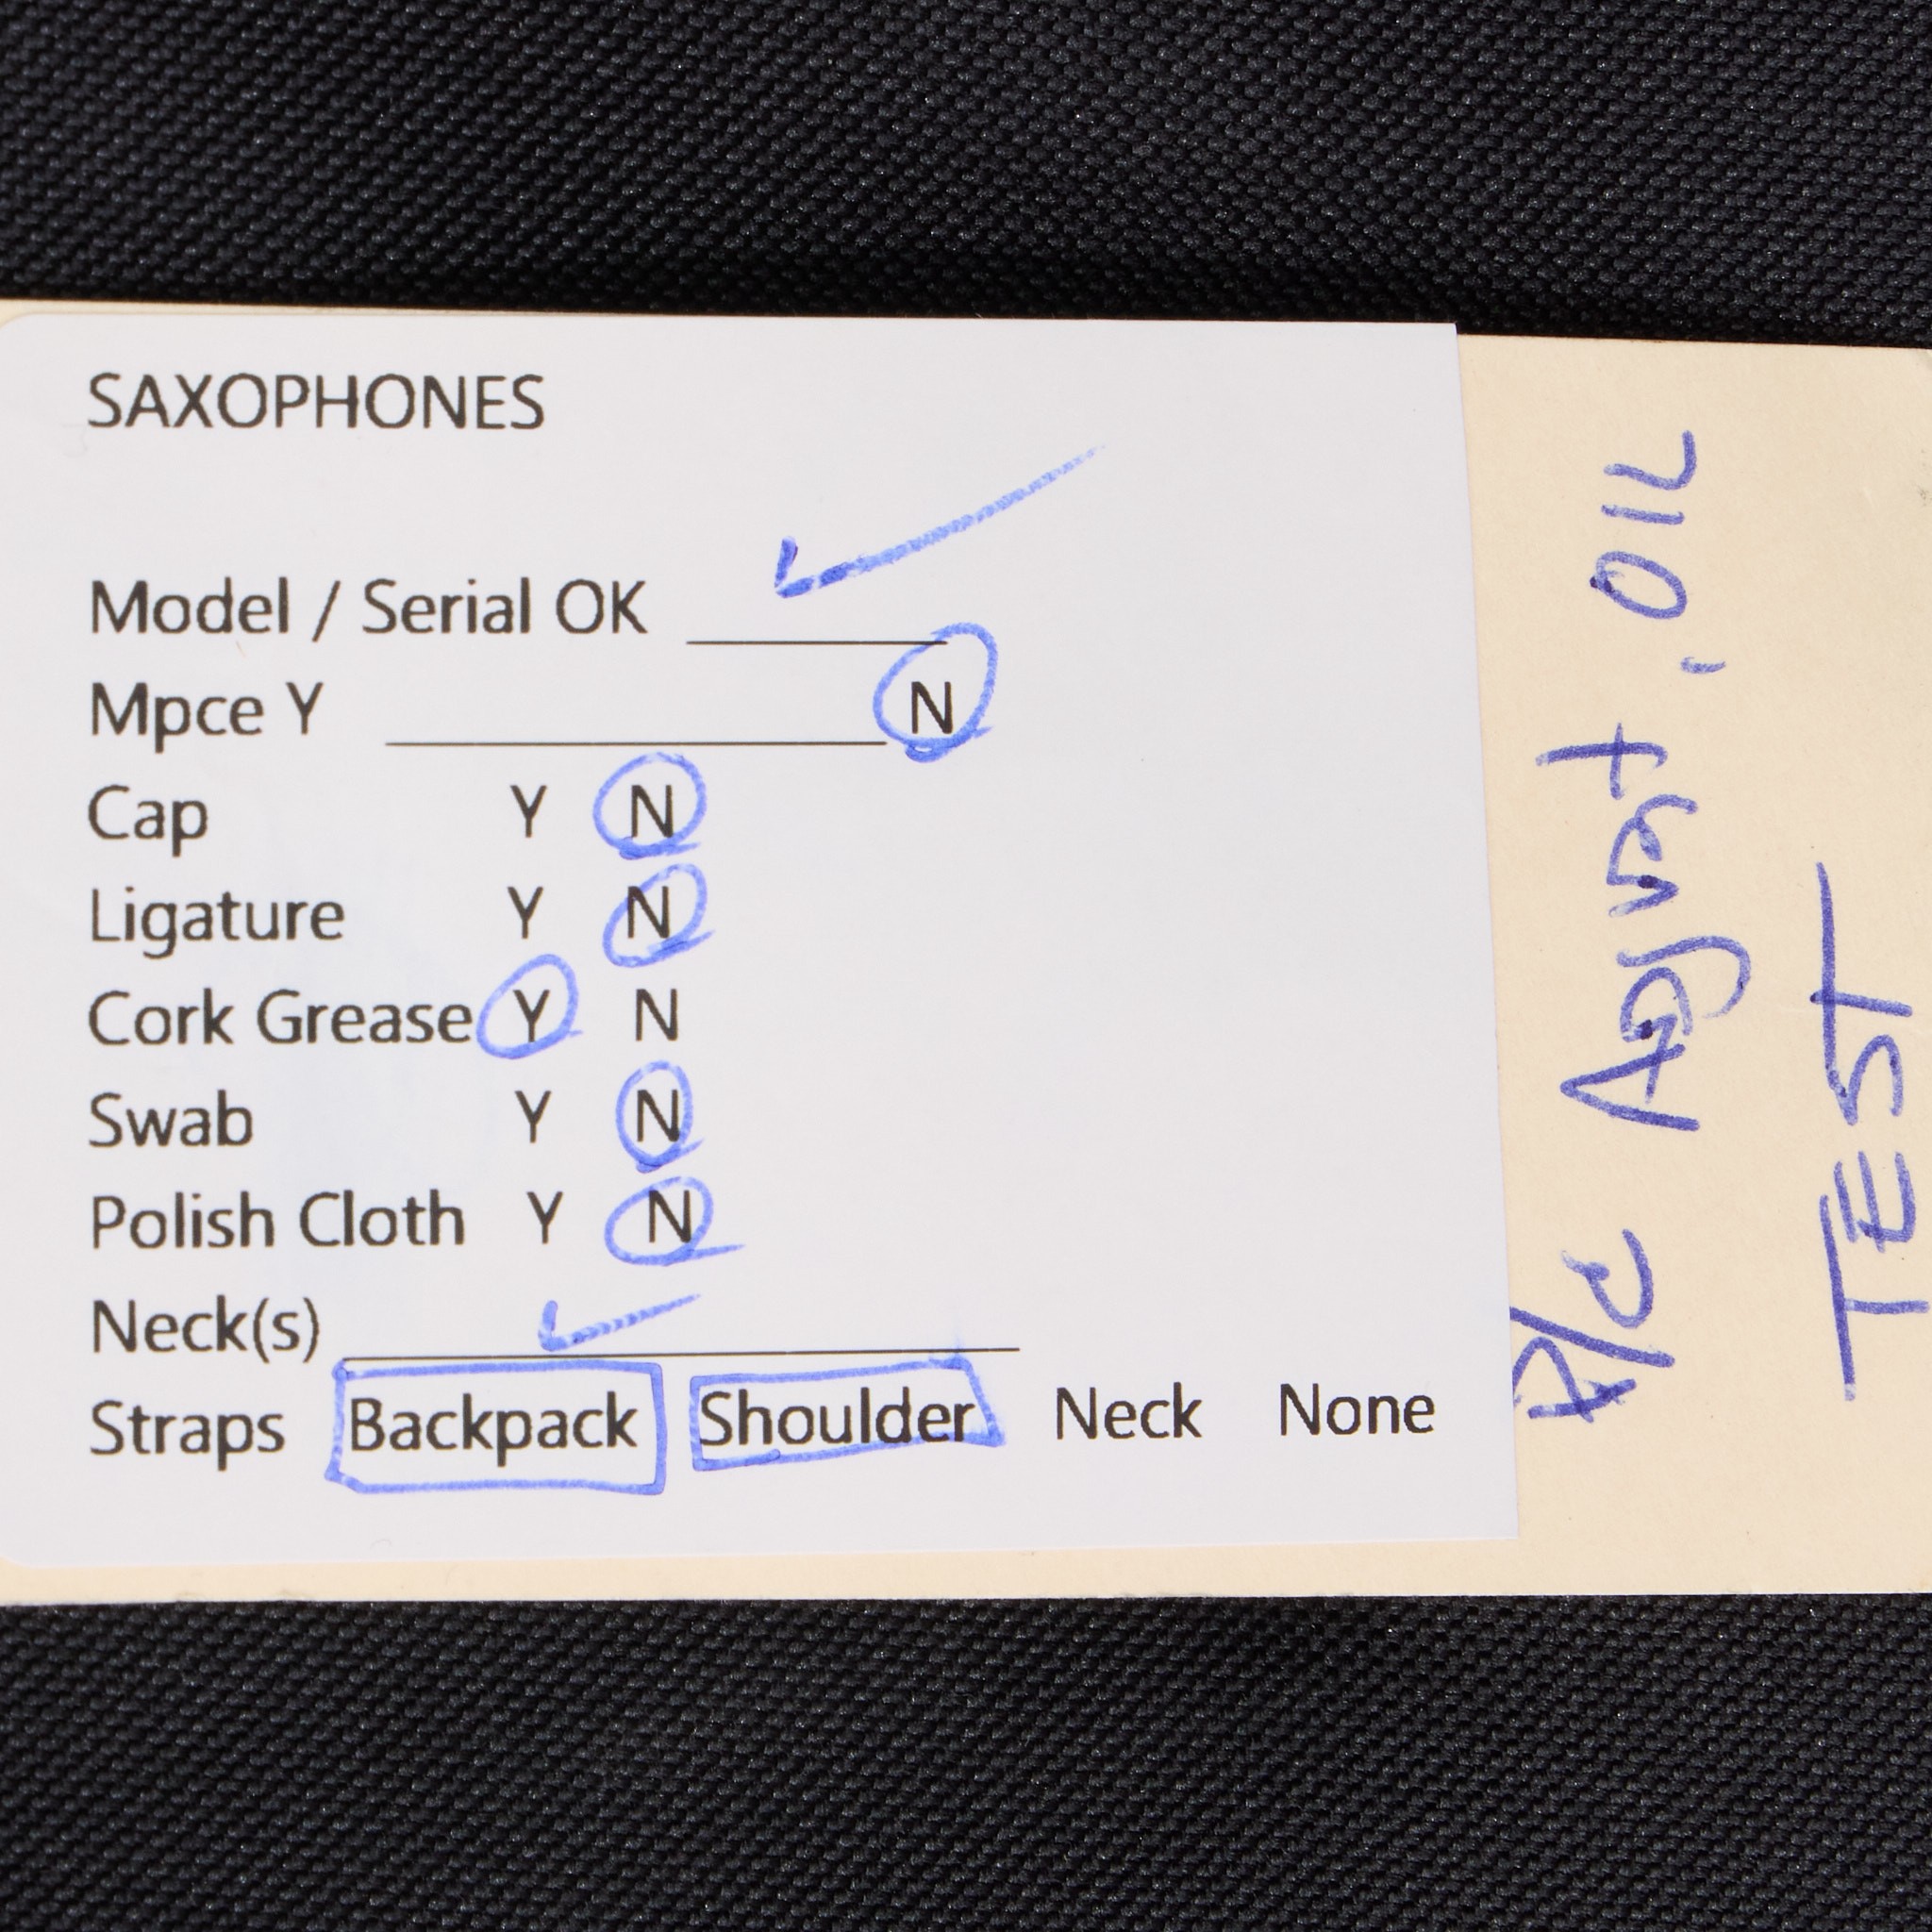 SAXOPHONES
Model / Serial OK ________ ✓
Mpce Y ________________ N
Cap Y N
Ligature Y N
Cork Grease Y N
Swab Y N
Polish Cloth Y N
Neck(s) ✓
Straps Backpack Shoulder Neck None
P/C , OIL
TEST